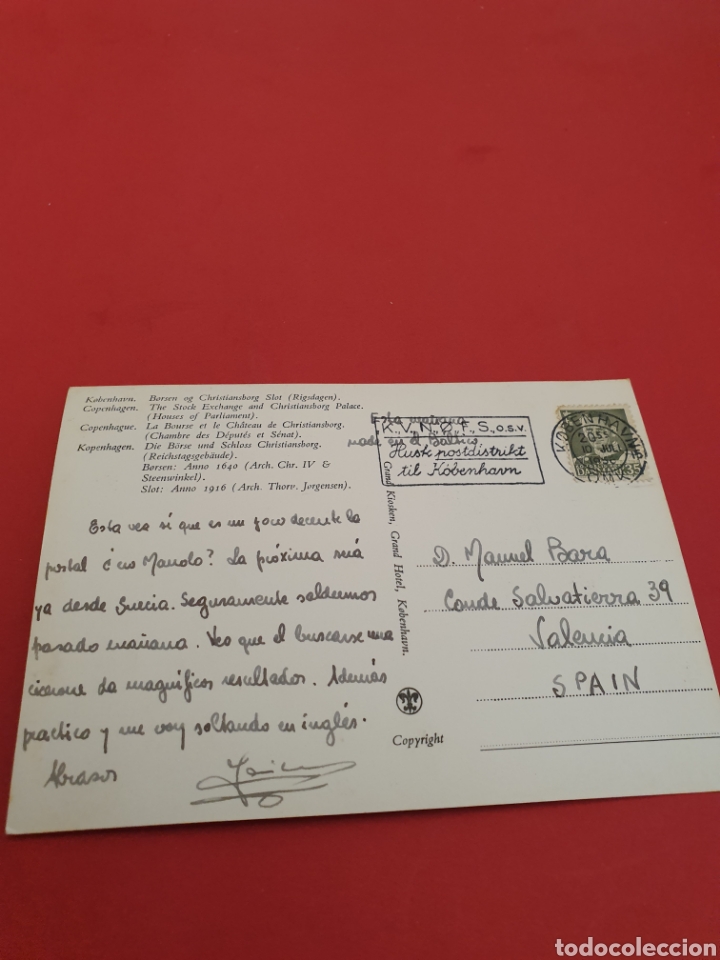 København. Børsen og Christiansborg Slot (Rigsdagen).
Copenhagen. The Stock Exchange and Christiansborg Palace.
(Houses of Parliament).
Copenhague. La Bourse et le Château de Christiansborg.
(Chambre des Députés et Sénat).
Kopenhagen. Die Börse und Schloss Christiansborg.
(Reichstagsgebäude).
Børsen: Anno 1640 (Arch. Chr. IV &
Steenwinkel).
Slot: Anno 1916 (Arch. Thorv. Jørgensen).
Esta mañana
nadé en el Báltico.
K., V., N., Ø., F., S., O.S.V.
Husk postdistrikt
til København
KØBENHAVN
Esta vez sí que es un poco decente la
postal ¿no Manolo? La próxima irá
ya desde Suecia. Seguramente saldremos
pasado mañana. Veo que el buscarse una
cicerone da magníficos resultados. Además
practico y me voy soltando en inglés.
Abrazos
Grand Kiosken, Grand Hotel, København.
D. Manuel Bara
Conde Salvatierra 39
Valencia
SPAIN
Copyright
todocoleccion